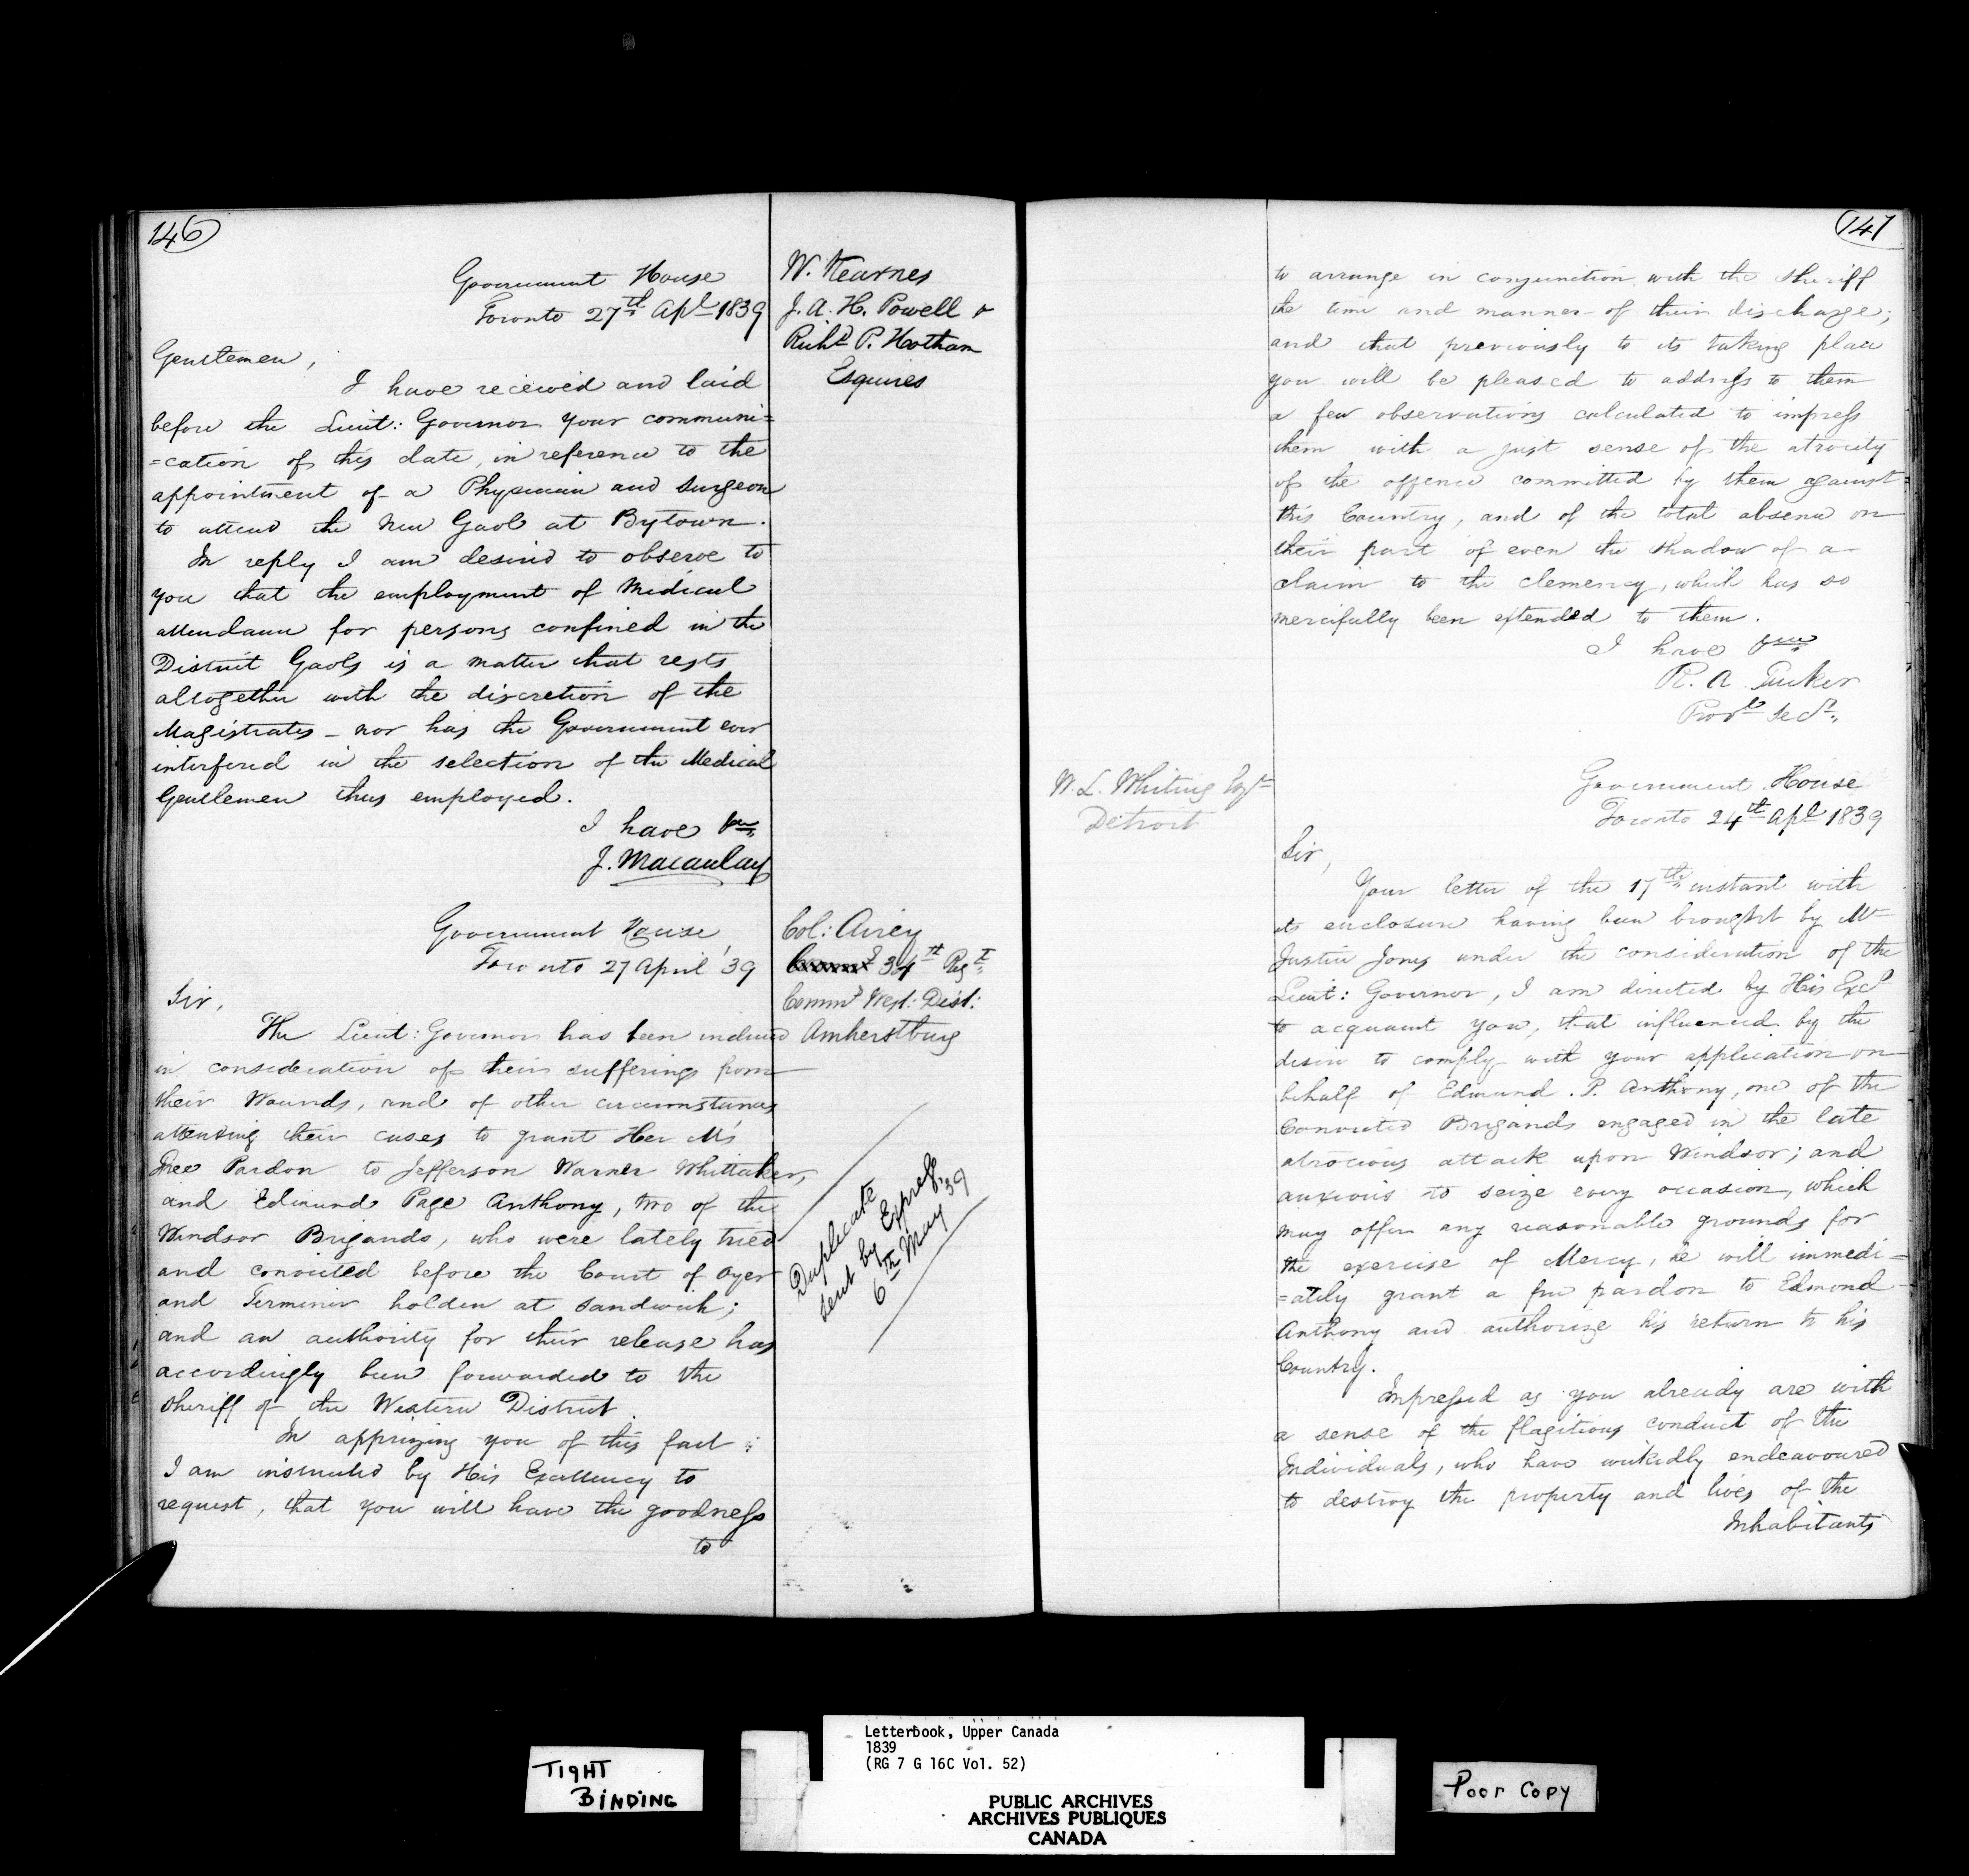 146
Government House
Toronto 27th Apl 1839
W. Kearnes
J. A. H. Powell &
Richd P. Hotham
Esquires
Gentlemen,
I have received and laid
before the Lieut: Governor your communi=
=cation of this date, in reference to the
appointment of a Physician and Surgeon
to attend the New Gaol at Bytown.
In reply I am desired to observe to
you that the employment of Medical
attendance for persons confined in the
District Gaols is a matter that rests
altogether with the discretion of the
Magistrates _ nor has the Government ever
interfered in the selection of the Medical
Gentlemen thus employed.
I have &c
J. Macaulay
Government House
Toronto 27 April '39
Col: Airey
34th Regt
Commg West: Dist:
Amherstburg
Sir,
The Lieut: Governor has been induced
in consideration of their sufferings from
their Wounds, and of other circumstances
attending their cases to grant Her M's
Free Pardon to Jefferson Warner Whittaker,
and Edmund Page Anthony, two of the
Windsor Brigands, who were lately tried
and convicted before the Court of Oyer
and Terminer holden at Sandwich;
and an authority for their release has
accordingly been forwarded to the
Sheriff of the Western District.
In apprizing you of this fact
I am instructed by His Excellency to
request, that you will have the goodness
to
Duplicate
sent by Express
6th May '39
147
to arrange in conjunction with the Sheriff
the time and manner of their discharge;
and that previously to its taking place
you will be pleased to address to them
a few observations calculated to impress
them with a just sense of the atrocity
of the offence committed by them against
this Country, and of the total absence on
their part of even the shadow of a
claim to the clemency, which has so
mercifully been extended to them.
I have &c
R. A. Tucker
Provl Secy
W. L. Whiting Esqr
Detroit
Government House
Toronto 24th Apl 1839
Sir,
Your letter of the 17th instant with
its enclosure having been brought by Mr
Justice Jones under the consideration of the
Lieut: Governor, I am directed by His Excy
to acquaint you, that influenced by the
desire to comply with your application on
behalf of Edmund. P. Anthony, one of the
Convicted Brigands engaged in the late
atrocious attack upon Windsor; and
anxious to seize every occasion, which
may offer any reasonable grounds for
the exercise of Mercy, he will immedi=
=ately grant a free pardon to Edmond
Anthony and authorize his return to his
Country.
Impressed as you already are with
a sense of the flagitious conduct of the
Individuals, who have wickedly endeavoured
to destroy the property and lives of the
Inhabitants
TIGHT
BINDING
Letterbook, Upper Canada
1839
(RG 7 G 16C Vol. 52)
PUBLIC ARCHIVES
ARCHIVES PUBLIQUES
CANADA
Poor Copy